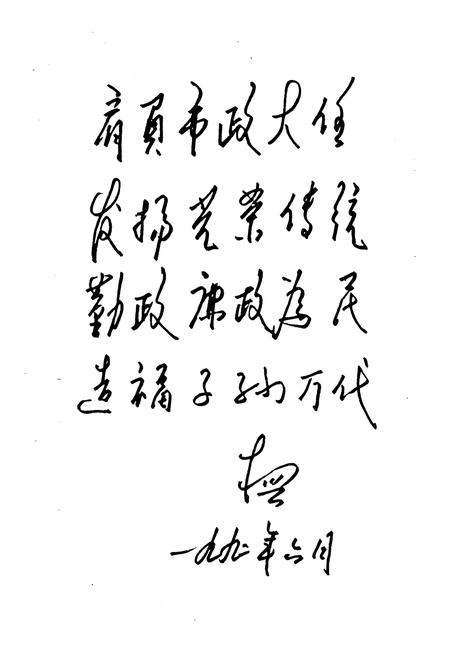 肩負市政大任
发揚光荣传统
勤政廉政為民
造福子孙万代
一九九二年六月